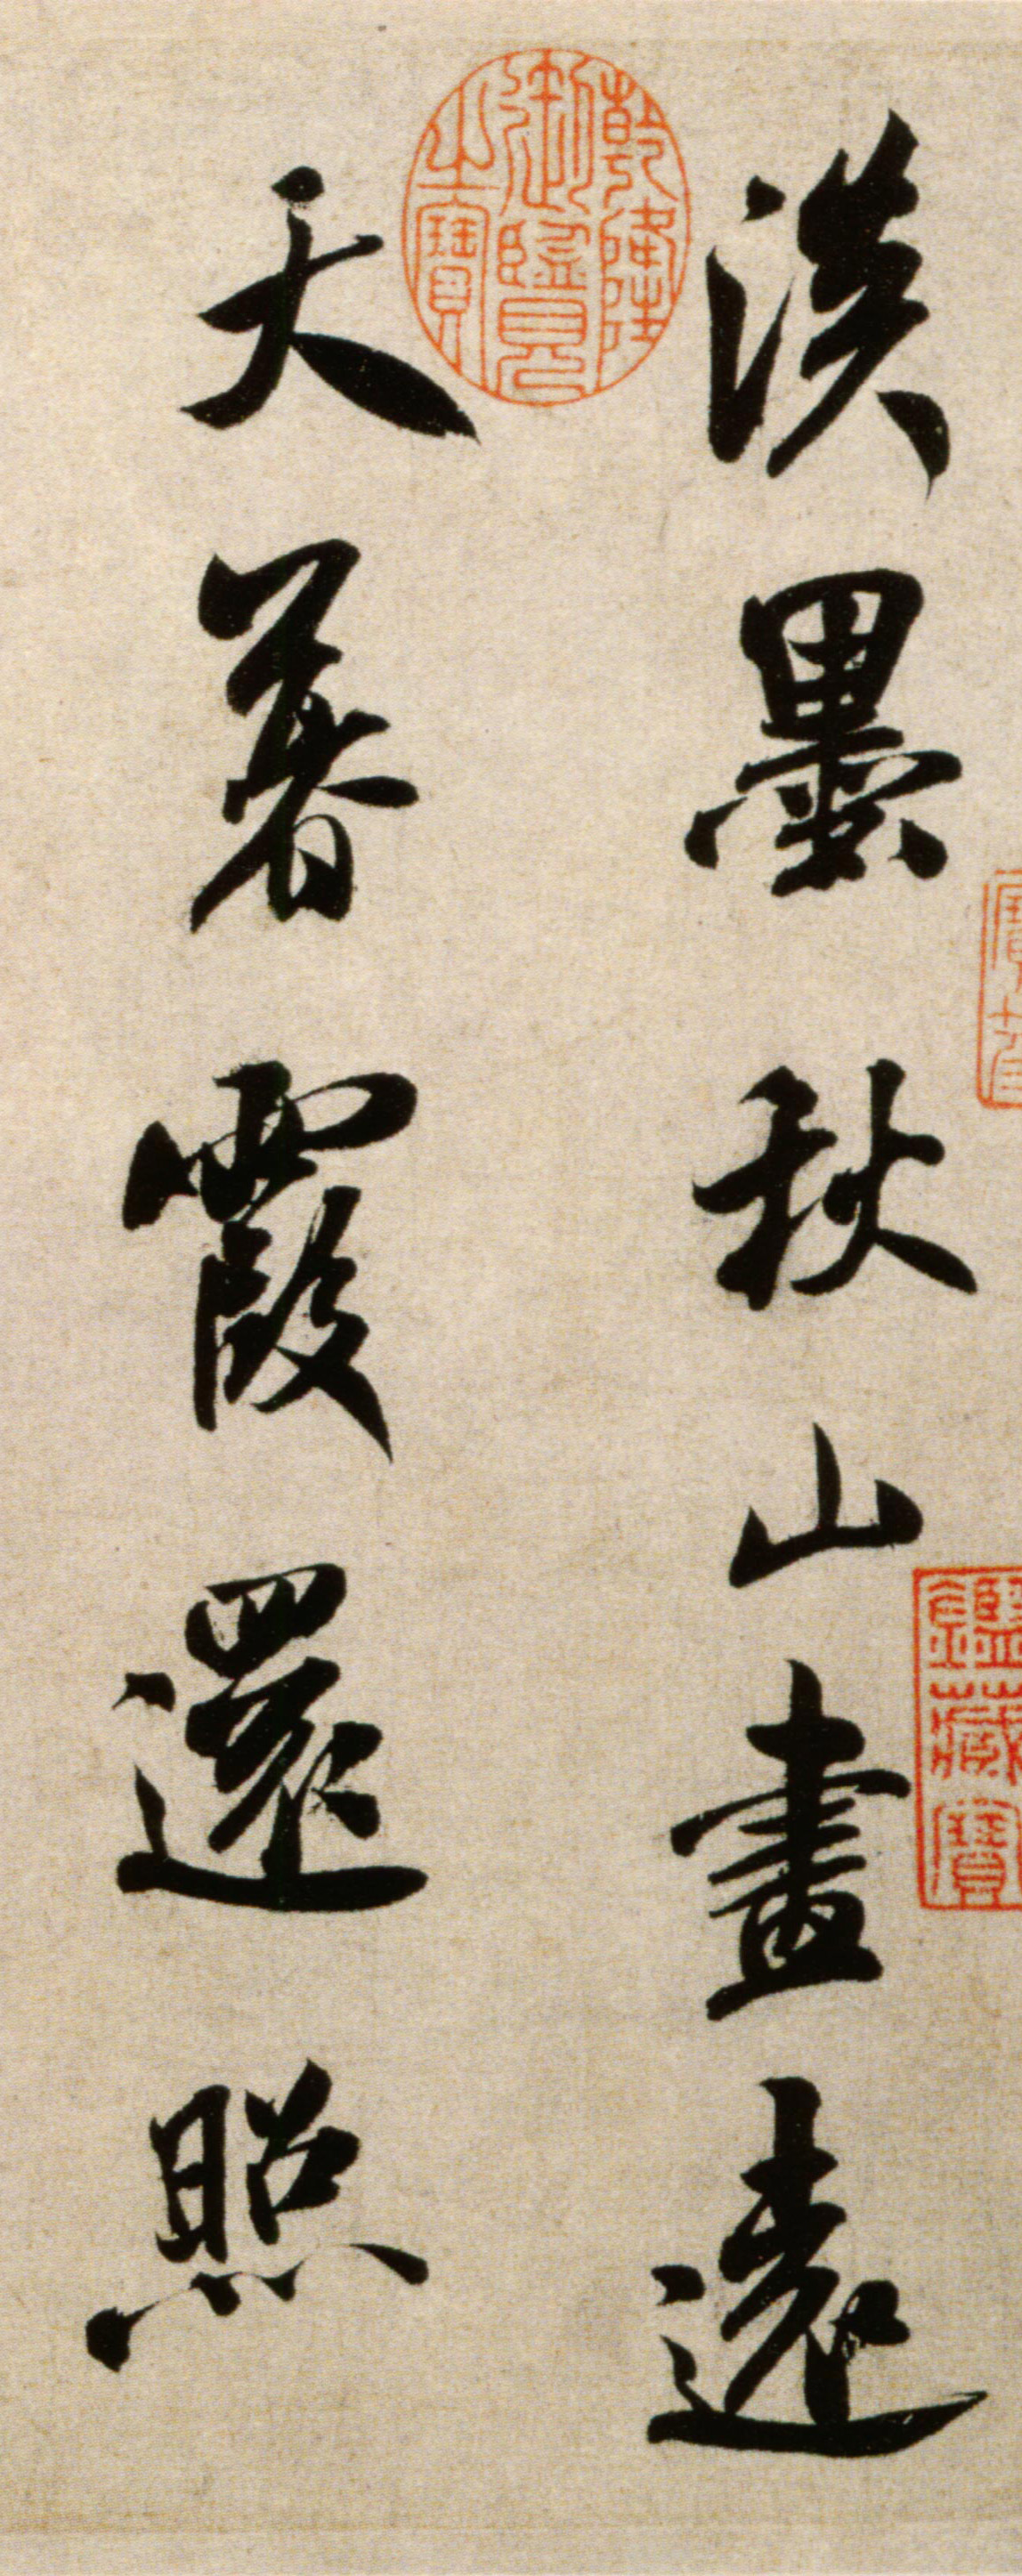 鑑藏寶
淡墨秋山畫遠
乾隆
御覽
之寶
天暮霞還照